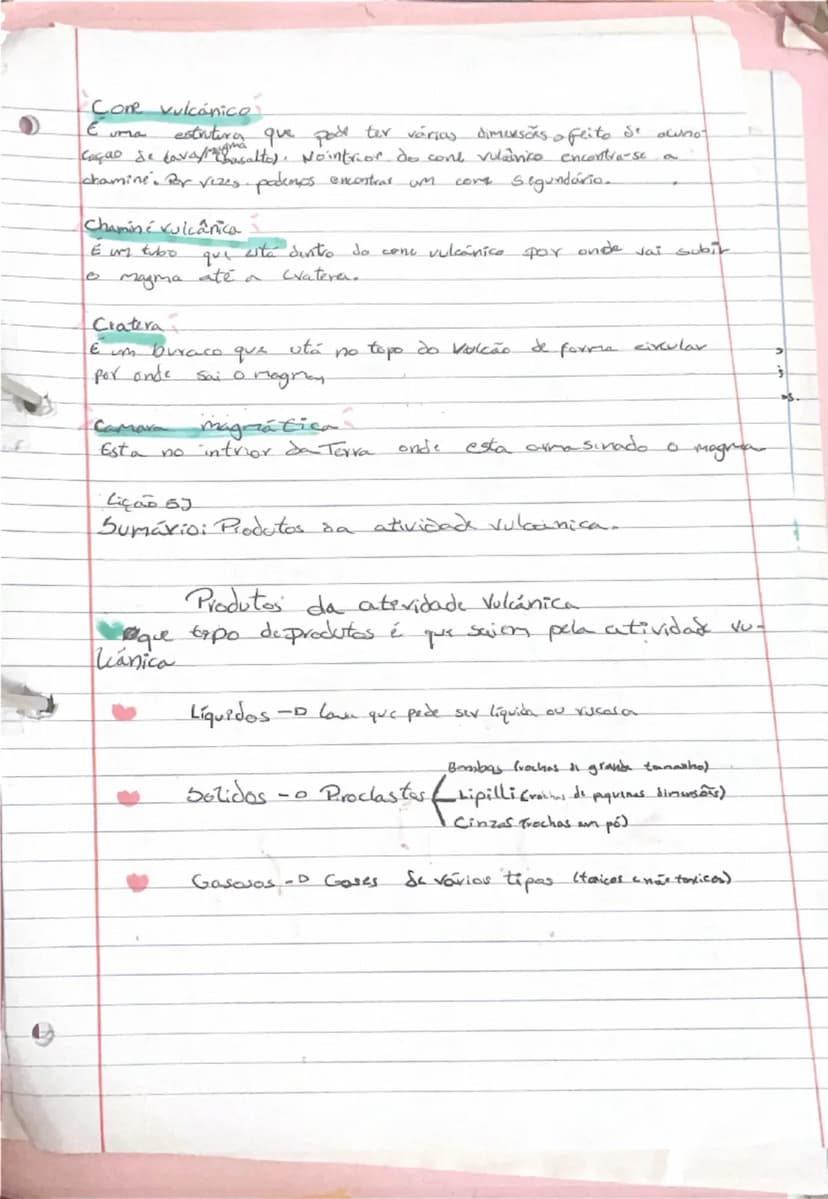 Cone vulcánico
É uma estrutura que pode ter várias dimensões, feito de acumo-
lação de lava/magma (basalto). No intrior do cone vulcânico encontra-se a
chaminé. Por vezes podemos encontrar um cone segundário.
Chaminé vulcânica
É um tubo que está dentro do cone vulcánico por onde vai subir
o magma até a cratera.
Cratera
É um buraco que está no topo do Volcão de forma circular
por onde sai o magma
Camara magmática
Esta no intrior da Terra onde esta armasinado o magma
Lição 53
Sumário: Produtos da atividade vulcânica.
Produtos da atevidade Vulcánica
que tipo de produtos é que saiem pela atividade vu-
lcánica
Líquidos → lava que pode ser líquida ou viscosa
Bombas (rochas de grande tamanho)
Sólidos → Proclastos Lipilli (rochas de pquenas dimensões)
Cinzas (rochas em pó)
Gasosos → Gases de vários tipos (toxicos e não toxicos)